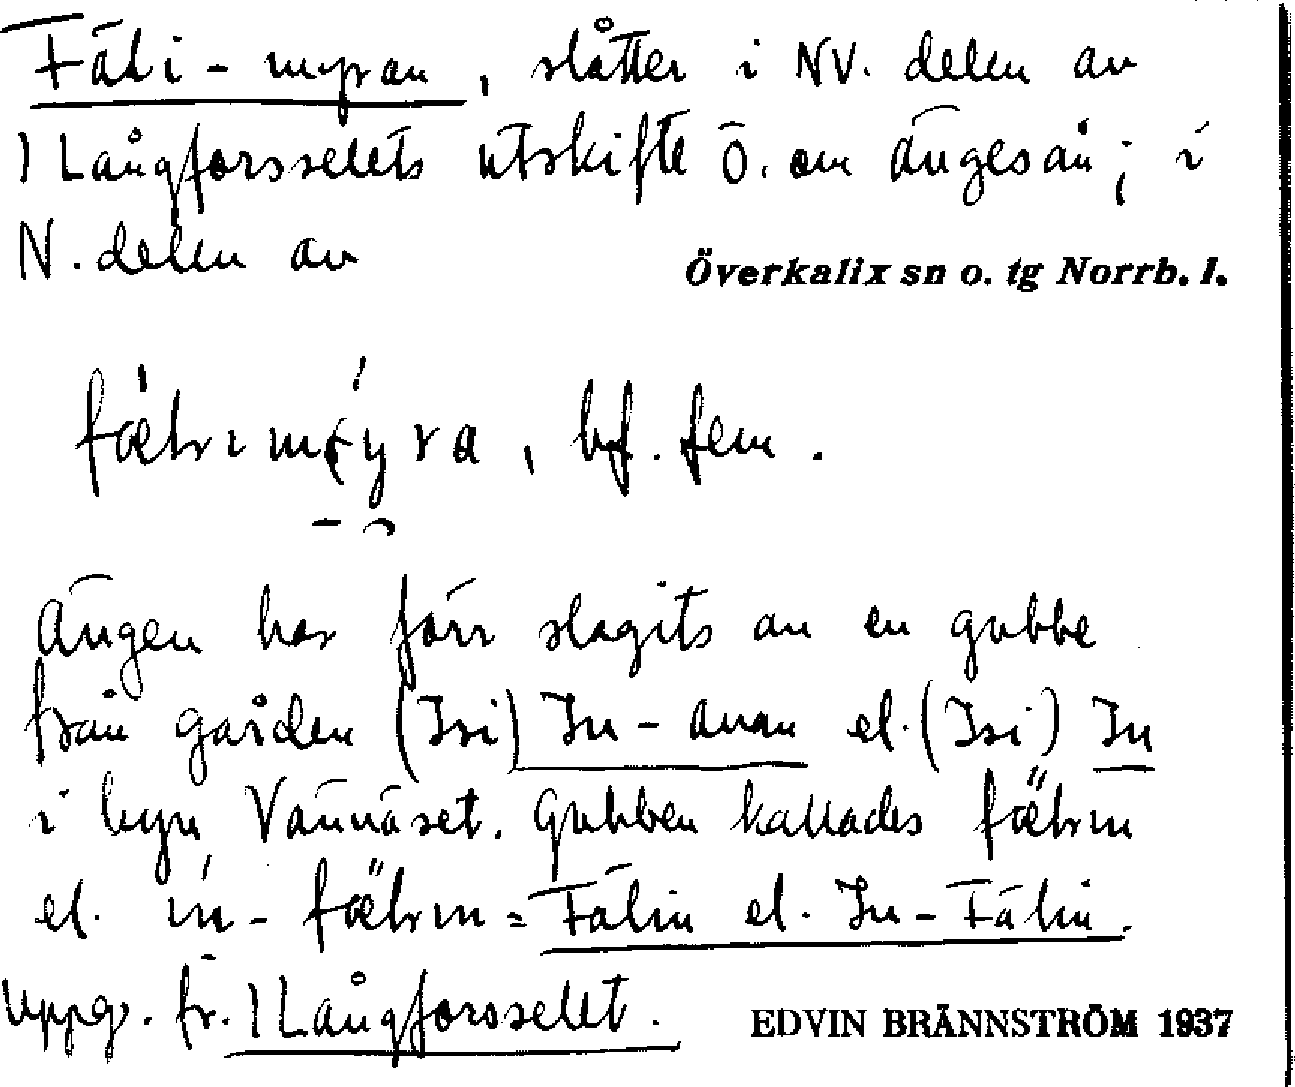 Fäli-myran, slåtter i NV. delen av
1 Långforsselets utskifte Ö. om Ängesån; i
N. delen av
Överkalix sn o. tg Norrb. l.
bf. fem.
Ängen har förr slagits av en gubbe
från gården (Isi) In-anan el. (Isi) In
i byn Vännäset. Gubben kallades
el. = Fälin el. In-Fälin.
Uppg. fr. 1 Långforsselet.
EDVIN BRÄNNSTRÖM 1937